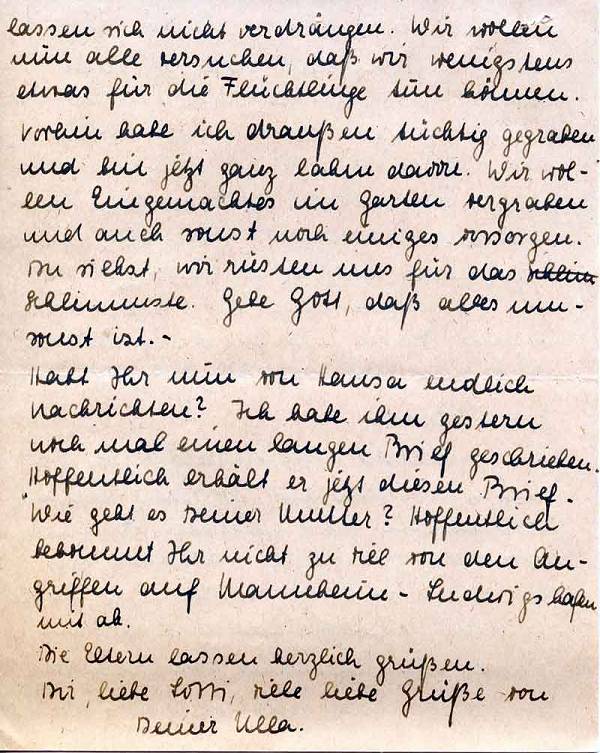 lassen sich nicht verdrängen. Wir wollen
nun alle versuchen, daß wir wenigstens
etwas für die Flüchtlinge tun können.
Vorhin habe ich draußen tüchtig gegraben
und bin jetzt ganz lahm davon. Wir wol-
len Eingemachtes im Garten vergraben
und auch sonst noch einiges vorsorgen.
Du siehst, wir rüsten uns für das schlim
Schlimmste. Gebe Gott, daß alles um-
sonst ist.-
Habt Ihr nun von Hansa endlich
Nachrichten? Ich habe ihm gestern
noch mal einen langen Brief geschrieben.
Hoffentlich erhält er jetzt diesen Brief.
Wie geht es Deiner Mutter? Hoffentlich
bekommt Ihr nicht zu viel von den An-
griffen auf Mannheim - Ludwigshafen
mit ab.
Die Eltern lassen herzlich grüßen.
Dir, liebe Lotti, viele liebe Grüße von
Deiner Ulla.